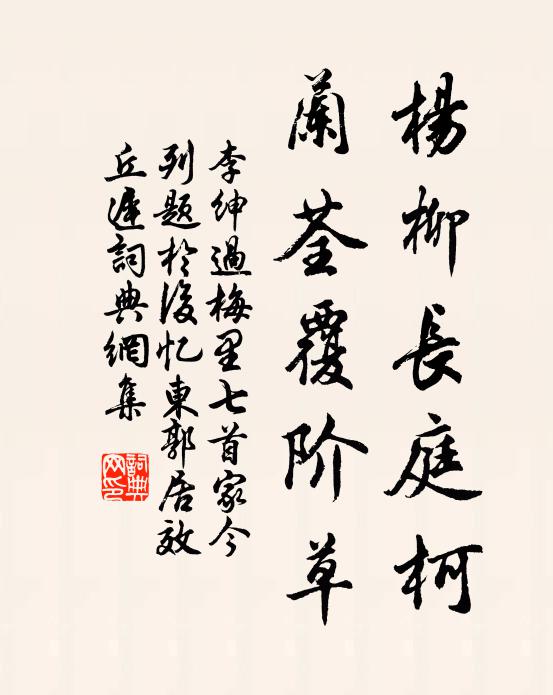 楊柳長庭柯
蘭荃覆阶草
李紳過梅里七首家今
列題於後忆東郭居效
丘遲詞典網集
詞典网印